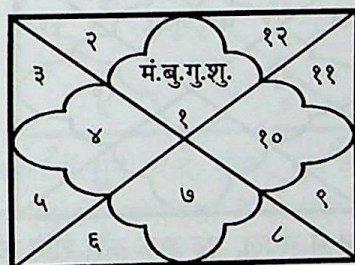 २ १२
३ मं.बु.गु.शु. ११
१
४ १०
७
५ ९
६ ८